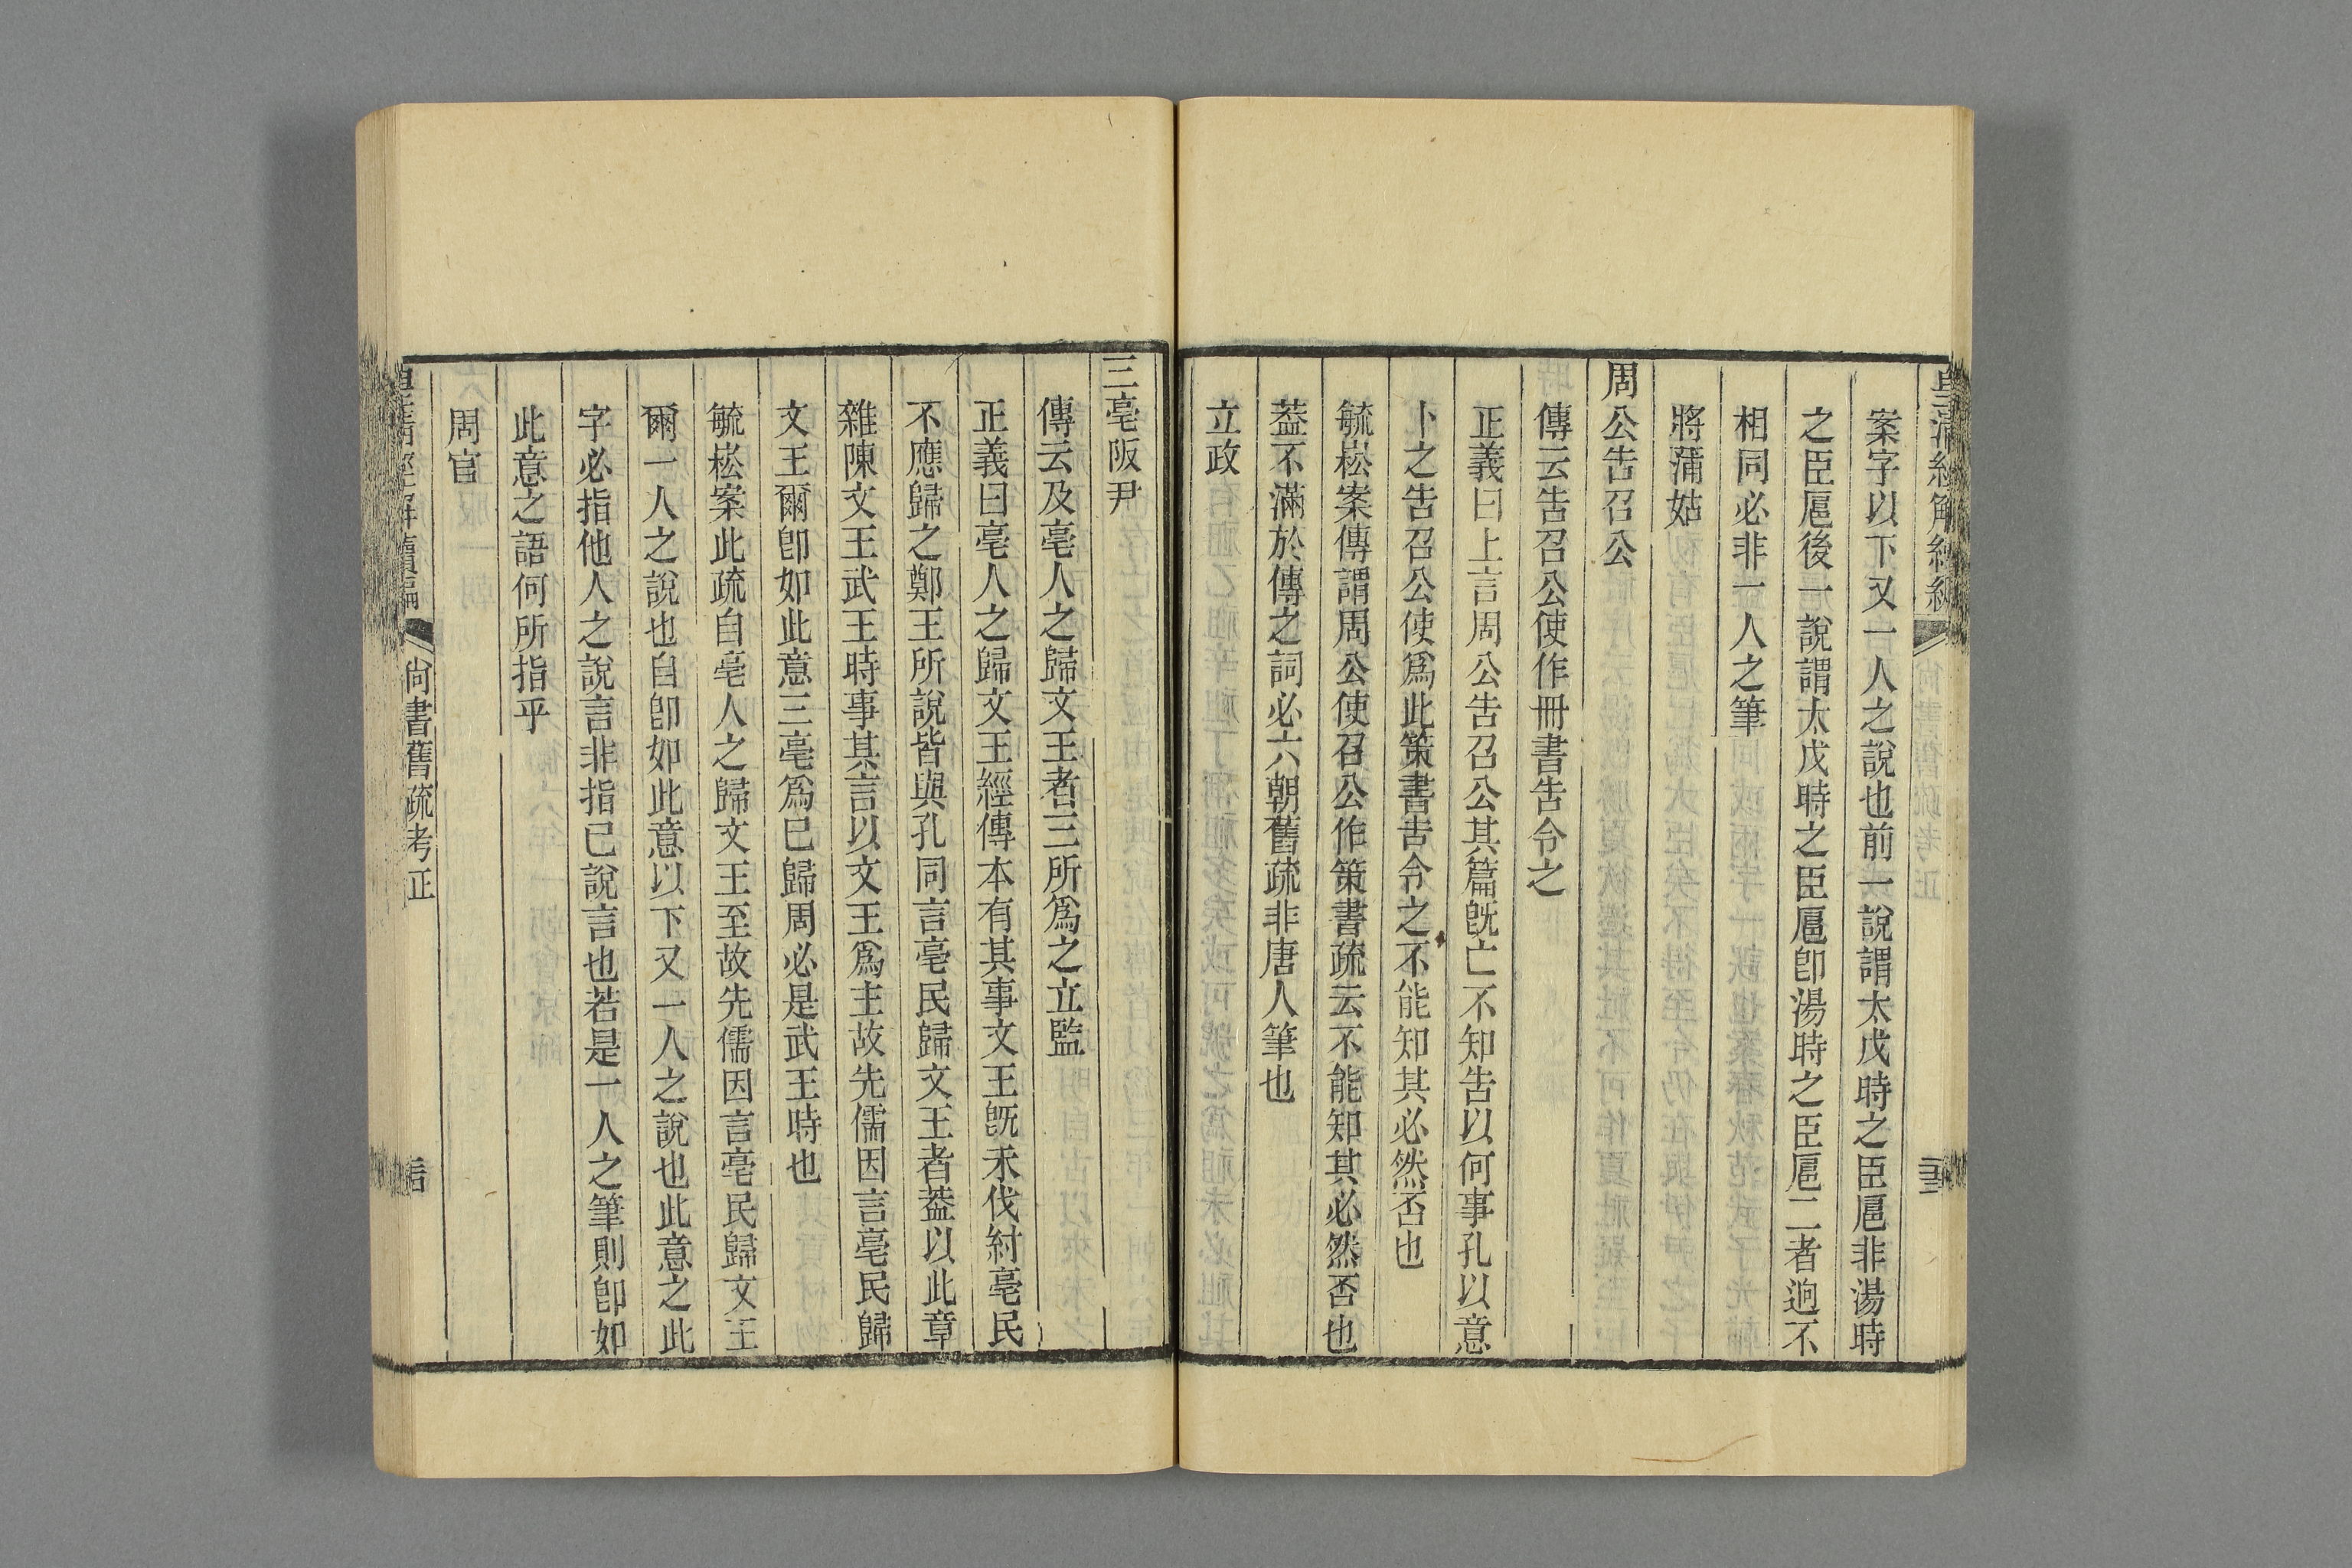 案字以下又一人之說也前一說謂太戊時之臣扈非湯時
之臣扈後一說謂太戊時之臣扈卽湯時之臣扈二者逈不
相同必非一人之筆
將蒲姑
周公告召公
傳云告召公使作冊書告令之
正義曰上言周公告召公其篇旣亡不知告以何事孔以意
卜之告召公使爲此策書告令之不能知其必然否也
毓崧案傳謂周公使召公作策書疏云不能知其必然否也
葢不滿於傳之詞必六朝舊疏非唐人筆也
立政
三亳阪尹
傳云及亳人之歸文王者三所爲之立監
正義曰亳人之歸文王經傳本有其事文王旣未伐紂亳民
不應歸之鄭王所說皆與孔同言亳民歸文王者葢以此章
雜陳文王武王時事其言以文王爲主故先儒因言亳民歸
文王爾卽如此意三亳爲已歸周必是武王時也
毓崧案此疏自亳人之歸文王至故先儒因言亳民歸文王
爾一人之說也自卽如此意以下又一人之說也此意之此
字必指他人之說言非指已說言也若是一人之筆則卽如
此意之語何所指乎
周官
皇清經解續編 尚書舊疏考正